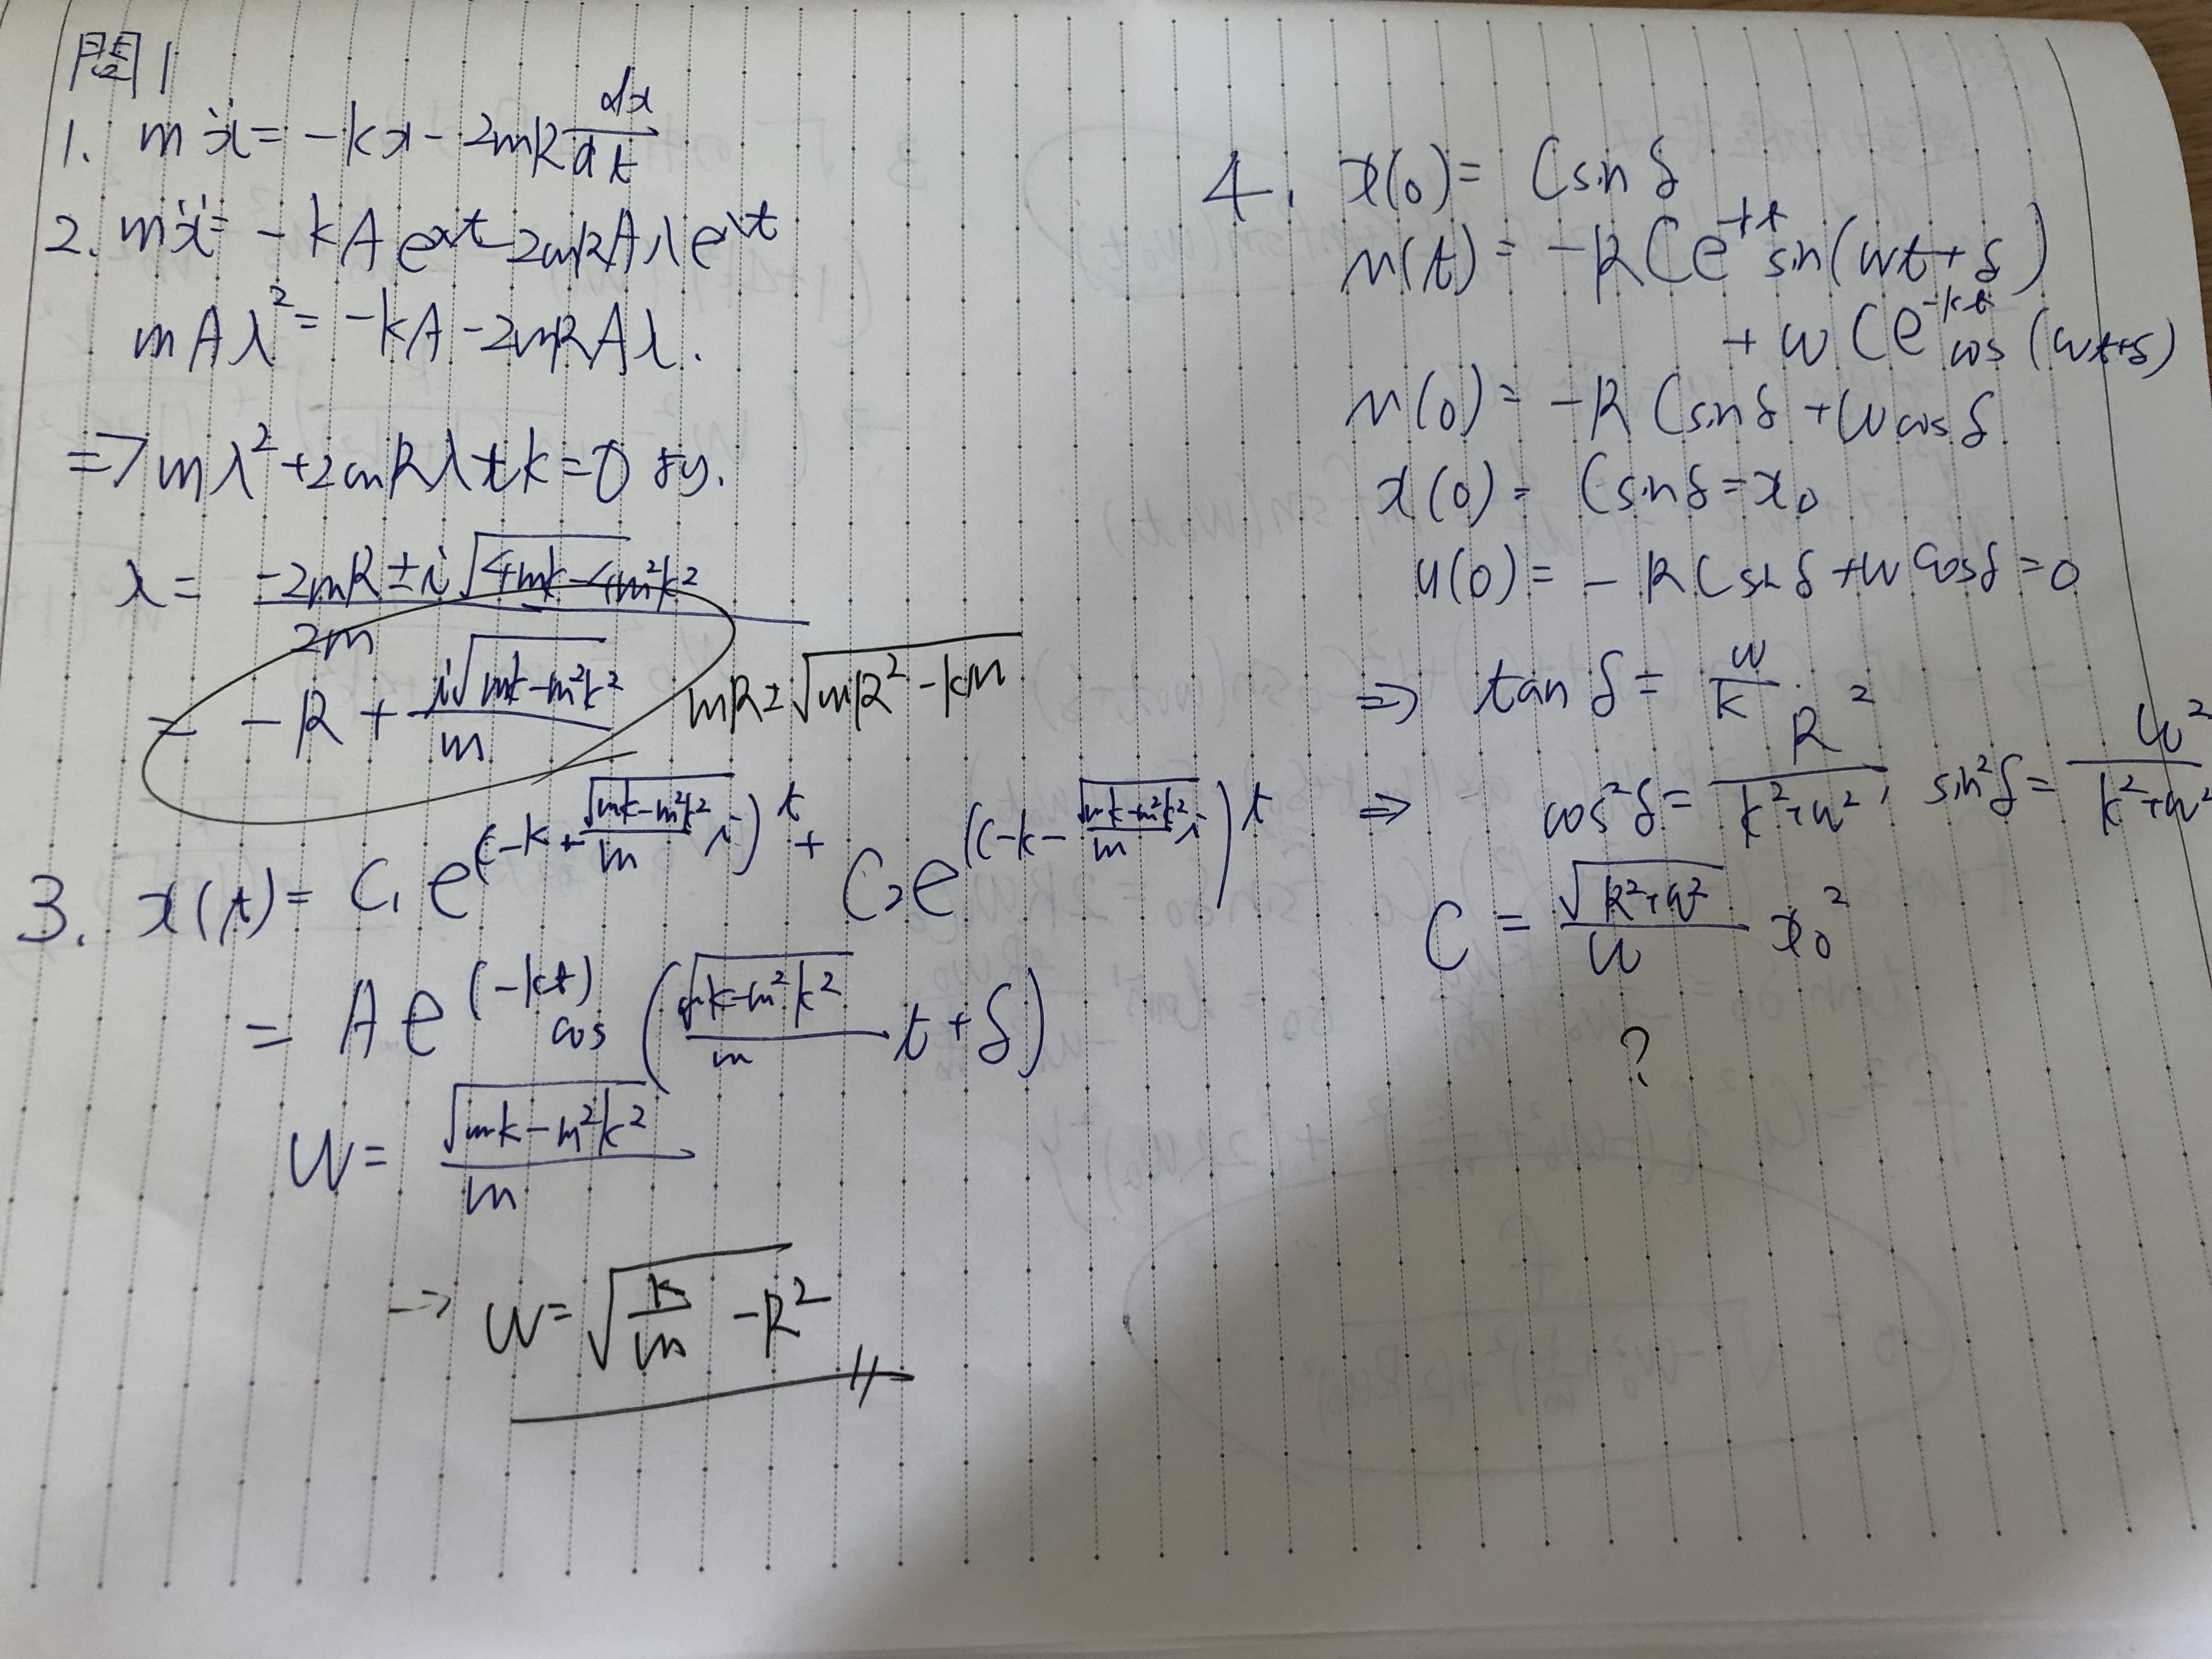 問1
1. mẍ = -kx - 2mk dx/dt
2. mẍ = -kAe^λt - 2mkAλe^λt
mAλ² = -kA - 2mkAλ.
⇒ mλ² + 2mkλ + k = 0 より.
λ = (-2mk ± i√(4mk - 4m²k²))/2m
= -k + i√(mk - m²k²)/m
mk ± √(mk² - km)
3. x(t) = C₁e^(-k + √(mk - m²k²)/m i)t + C₂e^((-k - √(mk - m²k²)/m i)t
= Ae^(-kt) cos(√(mk - m²k²)/m t + δ)
w = √(mk - m²k²)/m
→ w = √(k/m - k²)
4. x(0) = C sin δ
u(t) = -kCe^-kt sin(wt + δ)
+ wCe^-kt cos(wt + δ)
u(0) = -kC sin δ + w cos δ
x(0) = C sin δ = x₀
u(0) = -kC sin δ + w cos δ = 0
⇒ tan δ = w/k.
⇒ cos²δ = k²/(k² + w²), sin²δ = w²/(k² + w²)
C = √(k² + w²)/w x₀²
?